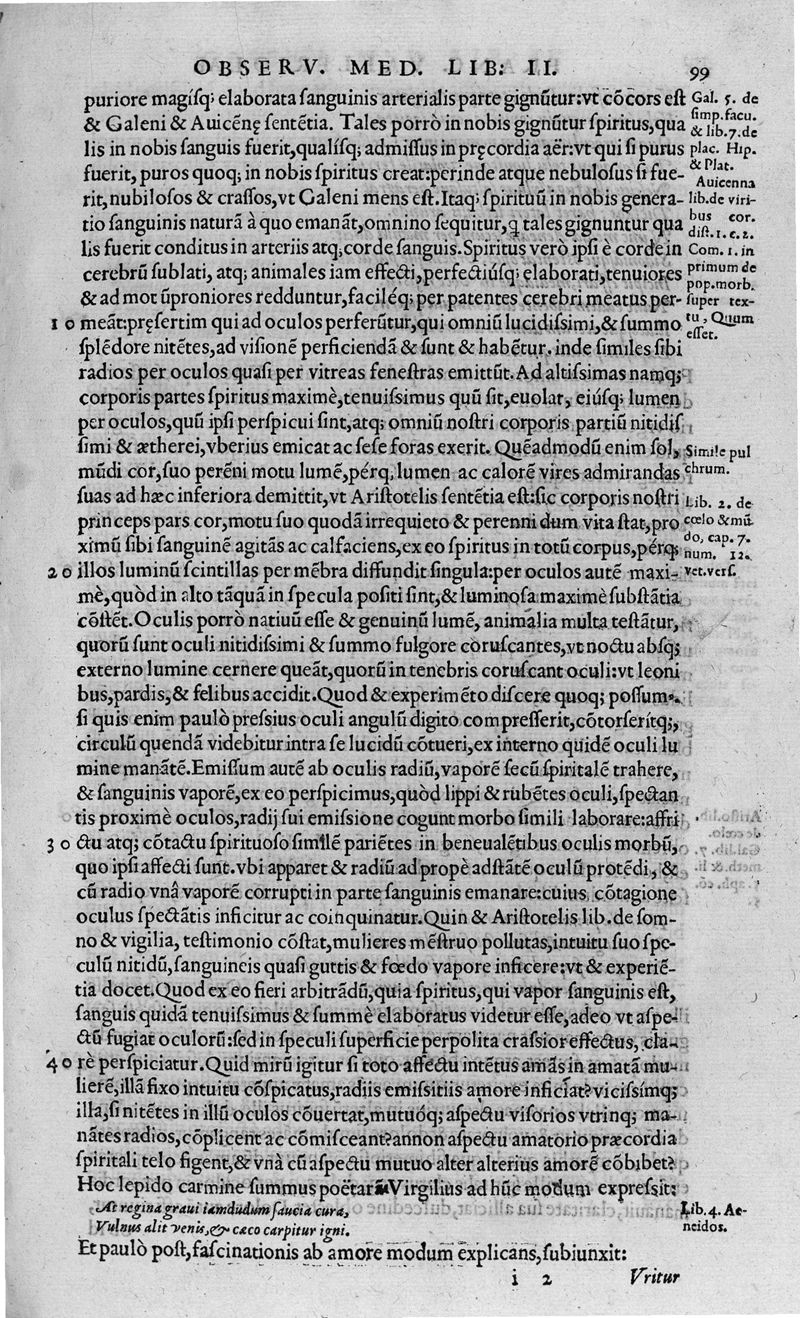 OBSERV. MED. LIB: II. 99
puriore magiſq; elaborata ſanguinis arterialis parte gignūtur: vt cōcors eſt
& Galeni & Auicēnę ſentētia. Tales porrò in nobis gignūtur ſpiritus, qua
lis in nobis ſanguis fuerit, qualíſq; admiſſus in pręcordia aër: vt qui ſi purus
fuerit, puros quoq; in nobis ſpiritus creat: perinde atque nebuloſus ſi fue-
rit, nubiloſos & craſſos, vt Galeni mens eſt. Itaq; ſpirituū in nobis genera-
tio ſanguinis naturā à quo emanāt, omnino ſequitur, q tales gignuntur qua
lis fuerit conditus in arteriis atq, corde ſanguis. Spiritus verò ipſi è corde in
cerebrū ſublati, atq; animales iam effecti, perfectiúſq; elaborati, tenuiores
& ad motūproniores redduntur, faciléq; per patentes cerebri meatus per-
10 meāt: pręſertim qui ad oculos perferūtur, qui omniū lucidiſsimi, & ſummo
ſplēdore nitētes, ad viſionē perficiendā & ſunt & habētur. inde ſimiles ſibi
radios per oculos quaſi per vitreas feneſtras emittūt. Ad altiſsimas namq;
corporis partes ſpiritus maximè, tenuiſsimus quū ſit, euolat, eiúſq; lumen
per oculos, quū ipſi perſpicui ſint, atq; omniū noſtri corporis partiū nitidiſ
ſimi & ætherei, vberius emicat ac ſeſe foras exerit. Quēadmodū enim ſol,
mūdi cor, ſuo perēni motu lumē, pérq, lumen ac calorē vires admirandas
ſuas ad hæc inferiora demittit, vt Ariſtotelis ſentētia eſt: ſic corporis noſtri
princeps pars cor, motu ſuo quodā irrequieto & perenni dum vita ſtat, pro
ximū ſibi ſanguinē agitās ac calfaciens, ex eo ſpiritus in totū corpus, pérq;
20 illos luminū ſcintillas per mēbra diffundit ſingula: per oculos autē maxi-
mè, quòd in alto tāquā in ſpecula poſiti ſint, & luminoſa maximè ſubſtātia
cōſtēt. Oculis porrò natiuū eſſe & genuinū lumē, animalia multa teſtātur,
quorū ſunt oculi nitidiſsimi & ſummo fulgore coruſcantes, vt noctu abſq;
externo lumine cernere queāt, quorū in tenebris coruſcant oculi: vt leoni
bus, pardis, & felibus accidit. Quod & experimēto diſcere quoq; poſſum9.
ſi quis enim paulò preſsius oculi angulū digito compreſſerit, cōtorſerítq;,
circulū quendā videbitur intra ſe lucidū cōtueri, ex interno quidē oculi lu
mine manātē. Emiſſum autē ab oculis radiū, vaporē ſecū ſpiritalē trahere,
& ſanguinis vaporē, ex eo perſpicimus, quòd lippi & rubētes oculi, ſpectan
tis proximè oculos, radij ſui emiſsione cogunt morbo ſimili laborare: affri
30 ctu atq; cōtactu ſpirituoſo ſimilē pariētes in beneualētibus oculis morbū,
quo ipſi affecti ſunt. vbi apparet & radiū ad propè adſtātē oculū protēdi, &
cū radio vnâ vaporē corrupti in parte ſanguinis emanare: cuius cōtagione
oculus ſpectātis inficitur ac coinquinatur. Quin & Ariſtotelis lib. de ſom-
no & vigilia, teſtimonio cōſtat, mulieres mēſtruo pollutas, intuitu ſuo ſpe-
culū nitidū, ſanguineis quaſi guttis & fœdo vapore inficere: vt & experiē-
tia docet. Quod ex eo fieri arbitrādū, quia ſpiritus, qui vapor ſanguinis eſt,
ſanguis quidā tenuiſsimus & ſummè elaboratus videtur eſſe, adeo vt aſpe-
ctū fugiat oculorū: ſed in ſpeculi ſuperficie perpolita craſsior effectus, cla-
40 rè perſpiciatur. Quid mirū igitur ſi toto affectu intētus amās in amatā mu-
lierē, illā fixo intuitu cōſpicatus, radiis emiſsitiis amore inficiat? viciſsímq;
illa, ſi nitētes in illū oculos cōuertat, mutuóq; aſpectu viſorios vtrinq; ma-
nātes radios, cōplicent ac cōmiſceant? annon aſpectu amatorio præcordia
ſpiritali telo figent, & vnà cū aſpectu mutuo alter alterius amorē cōbibet?
Hoc lepido carmine ſummus poëtarū Virgilius ad hūc modum expreſsit:
At regina graui iamdudum ſaucia cura,
Vulnus alit venis, & cæco carpitur igni.
Et paulò poſt, faſcinationis ab amore modum explicans, ſubiunxit:
i 2 Vritur
Gal. 5. de
ſimp. facu.
& lib. 7. de
plac. Hip.
& Plat.
Auicenna
lib. de viri-
bus cor.
diſt. 1. c. 2.
Com. 1. in
primum de
pop. morb.
ſuper tex-
tu, Quum
eſſet.
Simile pul
chrum.
Lib. 2. de
cœlo & mū
do, cap. 7.
num. 12.
vet. verſ.
Lib. 4. Ae-
neidos.